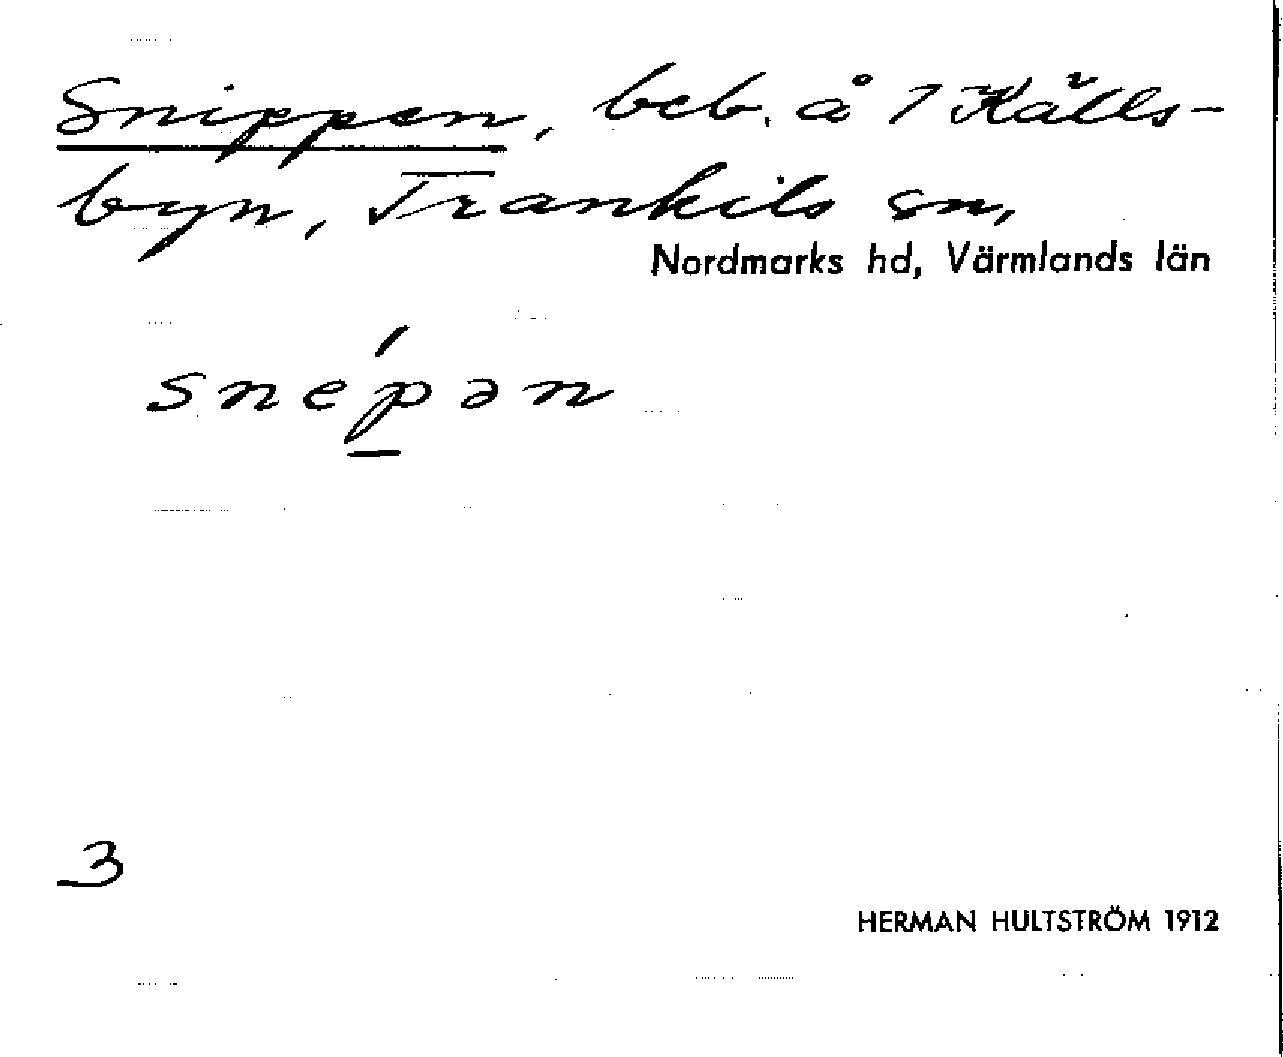 Snippen, beb. å 7 Källs-
byn, Trankils sn,
Nordmarks hd, Värmlands län
snep̲´ən
3
HERMAN HULTSTRÖM 1912